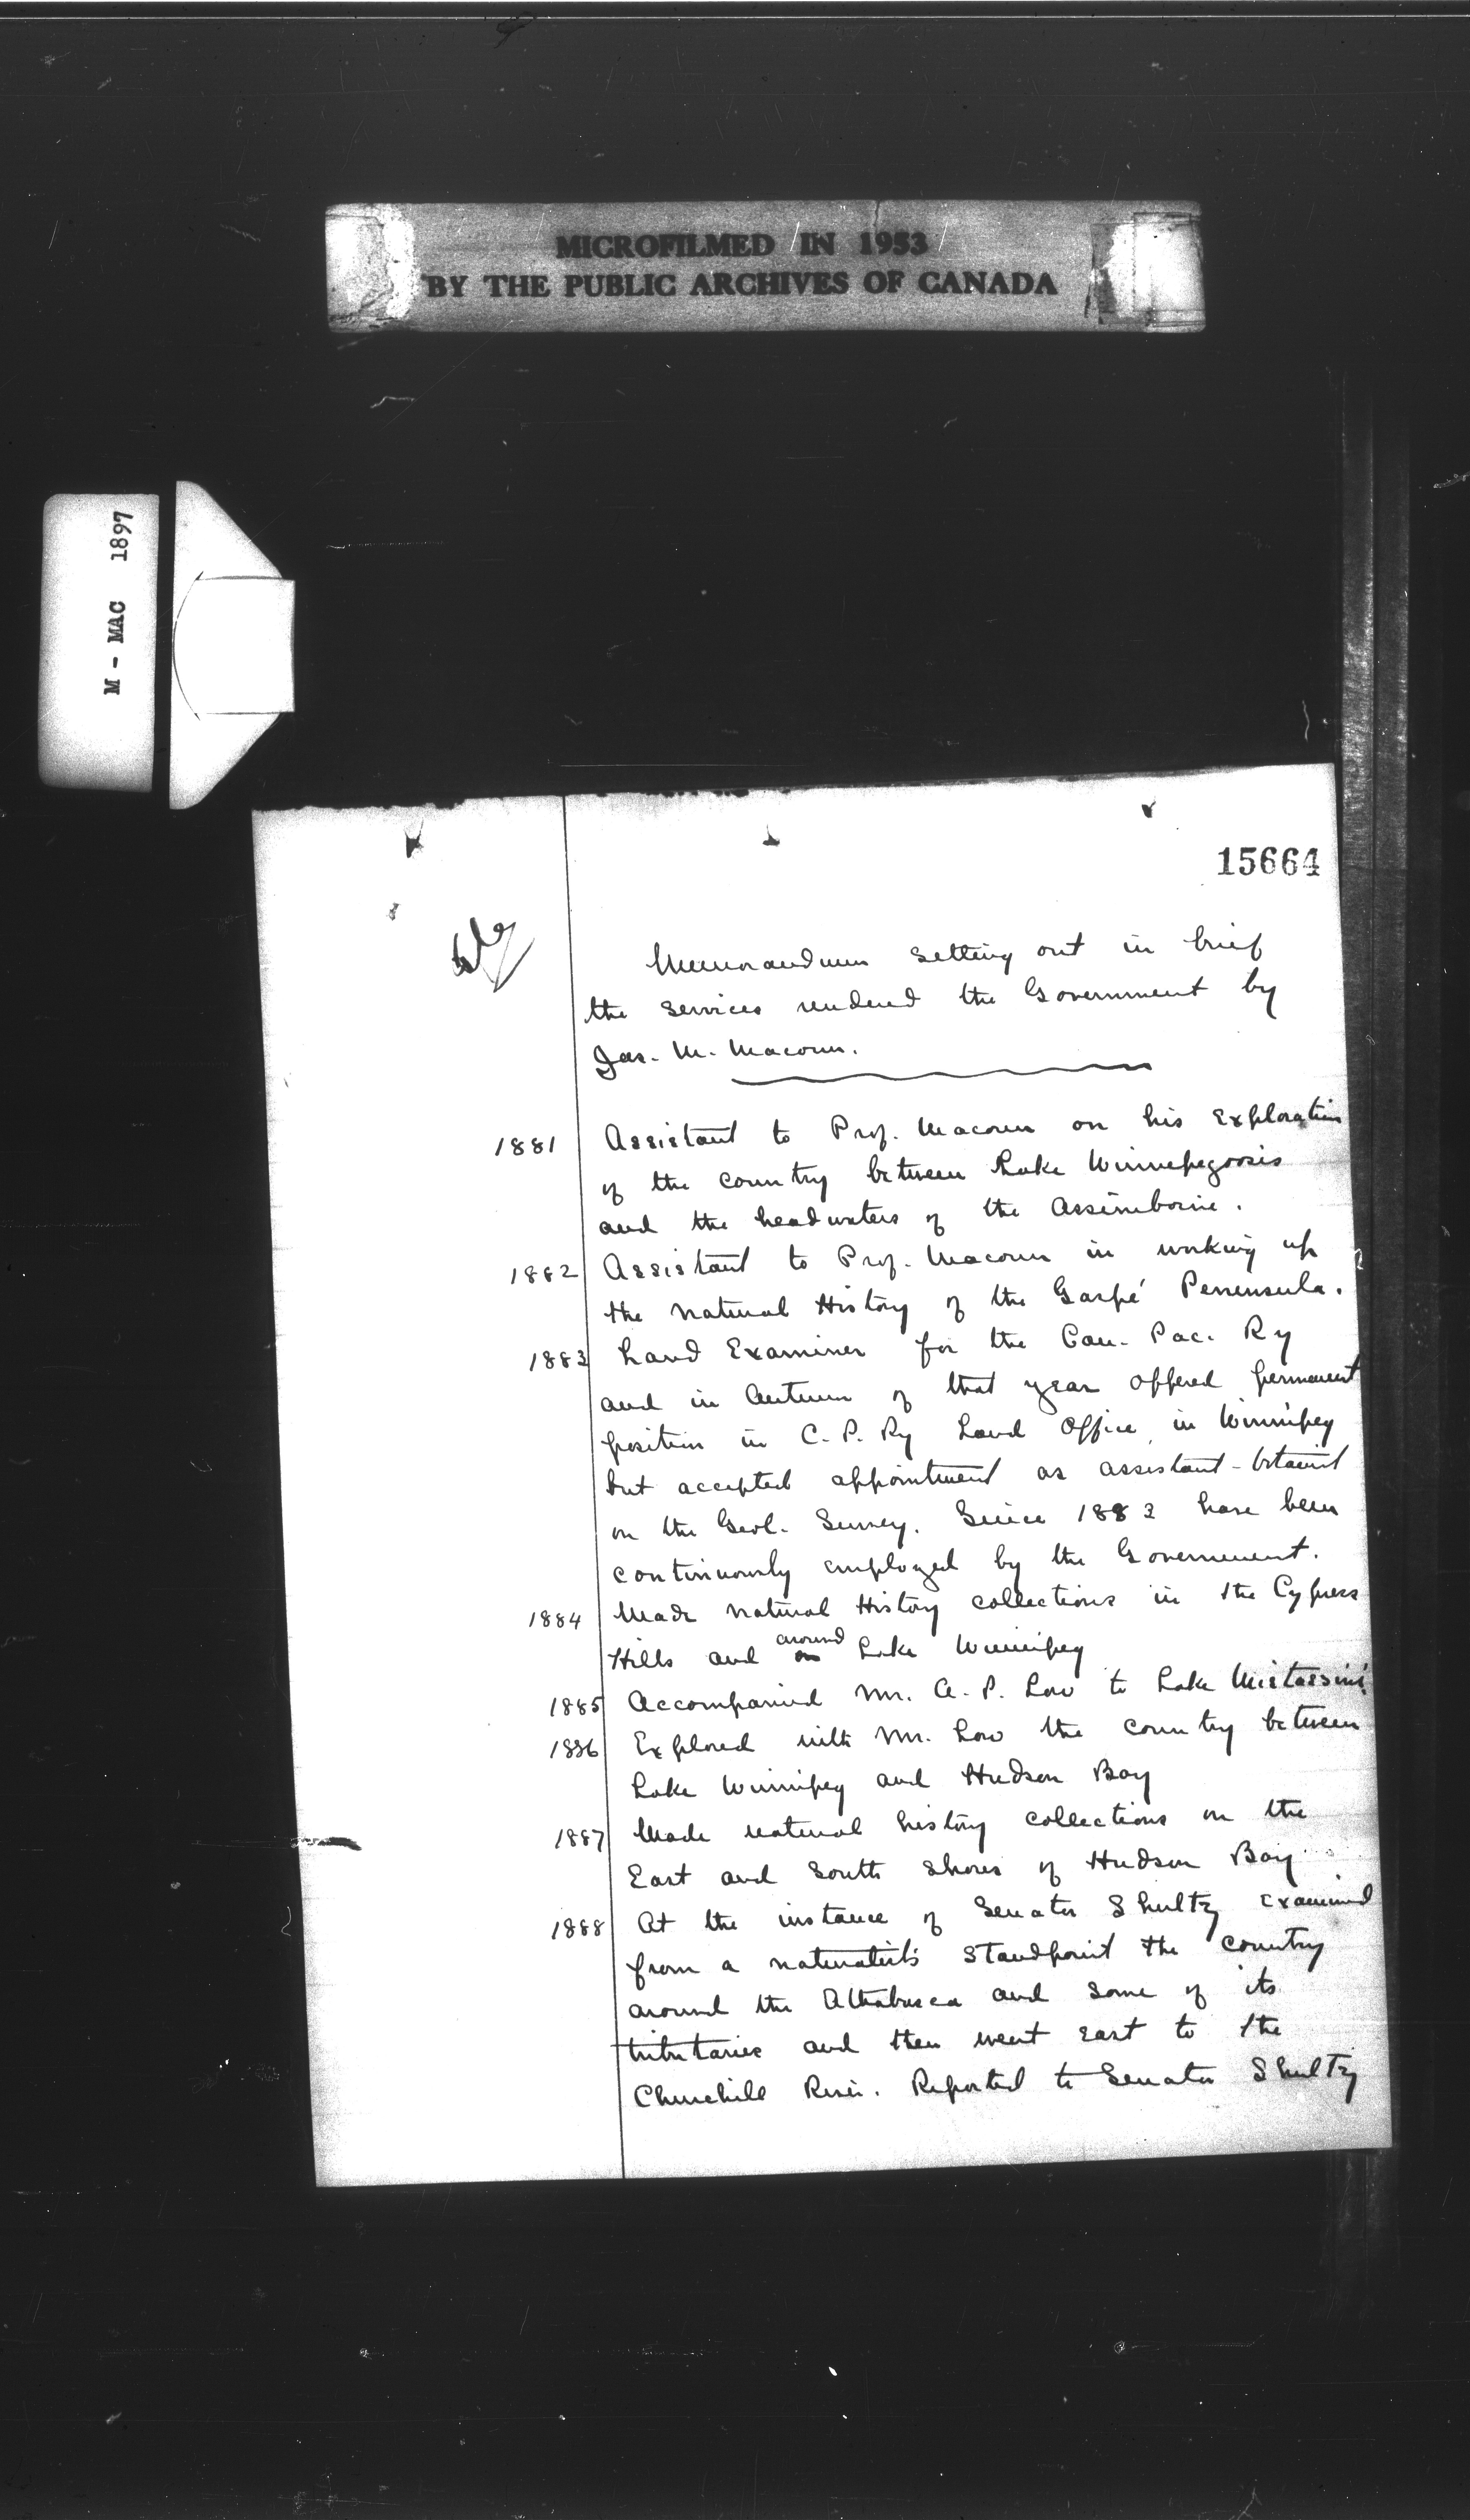 MICROFILMED IN 1953
BY THE PUBLIC ARCHIVES OF CANADA
M - MAC 1897
15664
Memorandum setting out in brief
the services rendered the Government by
Jas. M. Macoun.
1881 Assistant to Prof. Macoun on his Exploration
of the country between Lake Winnepegoosis
and the headwaters of the Assineboine.
1882 Assistant to Prof. Macoun in working up
the Natural History of the Gaspé Penensula.
1883 Land Examiner for the Can. Pac. Ry
and in Autumn of that year offered permanent
position in C. P. Ry Land Office in Winnipeg
but accepted appointment as assistant-botanist
on the Geol. Survey. Since 1883 have been
continuously employed by the Government.
1884 Made natural History collections in the Cypress
Hills and around Lake Winnipeg
1885 Accompanied Mr. A. P. Low to Lake Mistassini.
1886 Explored with Mr. Low the country between
Lake Winnipeg and Hudson Bay
1887 Made natural history collections on the
East and South Shores of Hudson Bay
1888 At the instance of Senator Shultz examined
from a naturalist's standpoint the country
around the Athabasca and some of its
tributaries and then went east to the
Churchill River. Reported to Senator Shultz